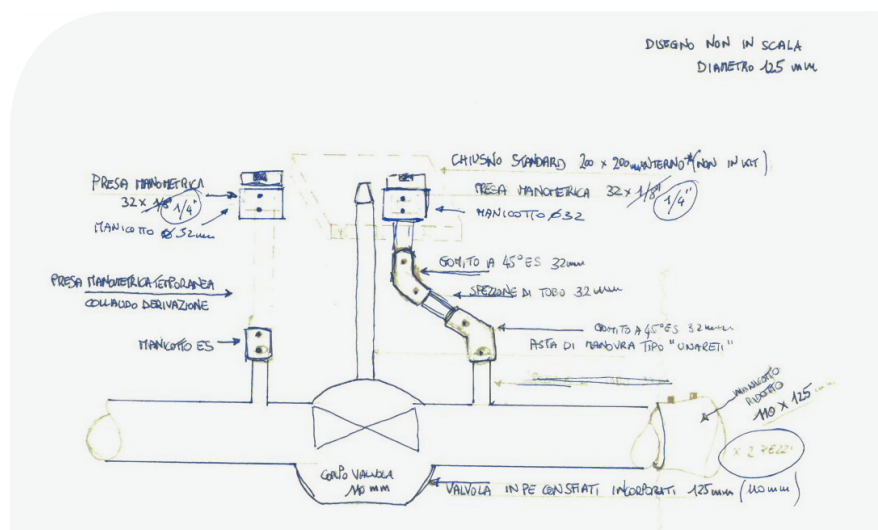 DISEGNO NON IN SCALA
DIAMETRO 125 mm
CHIUSINO STANDARD 200 x 200 mm INTERNO * (NON IN KIT)
PRESA MANOMETRICA
32 x 1/8" 1/4"
MANICOTTO Ø 32mm
PRESA MANOMETRICA 32 x 1/8" 1/4"
MANICOTTO Ø 32
GOMITO A 45° ES 32mm
SPEZZONE DI TUBO 32 mm
PRESA MANOMETRICA TEMPORANEA
COLLAUDO DERIVAZIONE
MANICOTTO ES
GOMITO A 45° ES 32mm
ASTA DI MANOVRA TIPO "UNARETI"
MANICOTTO
RIDOTTO
110 x 125 mm
x 2 PEZZI
CORPO VALVOLA
110 mm
VALVOLA IN PE CON SFIATI INCORPORATI 125mm (110mm)